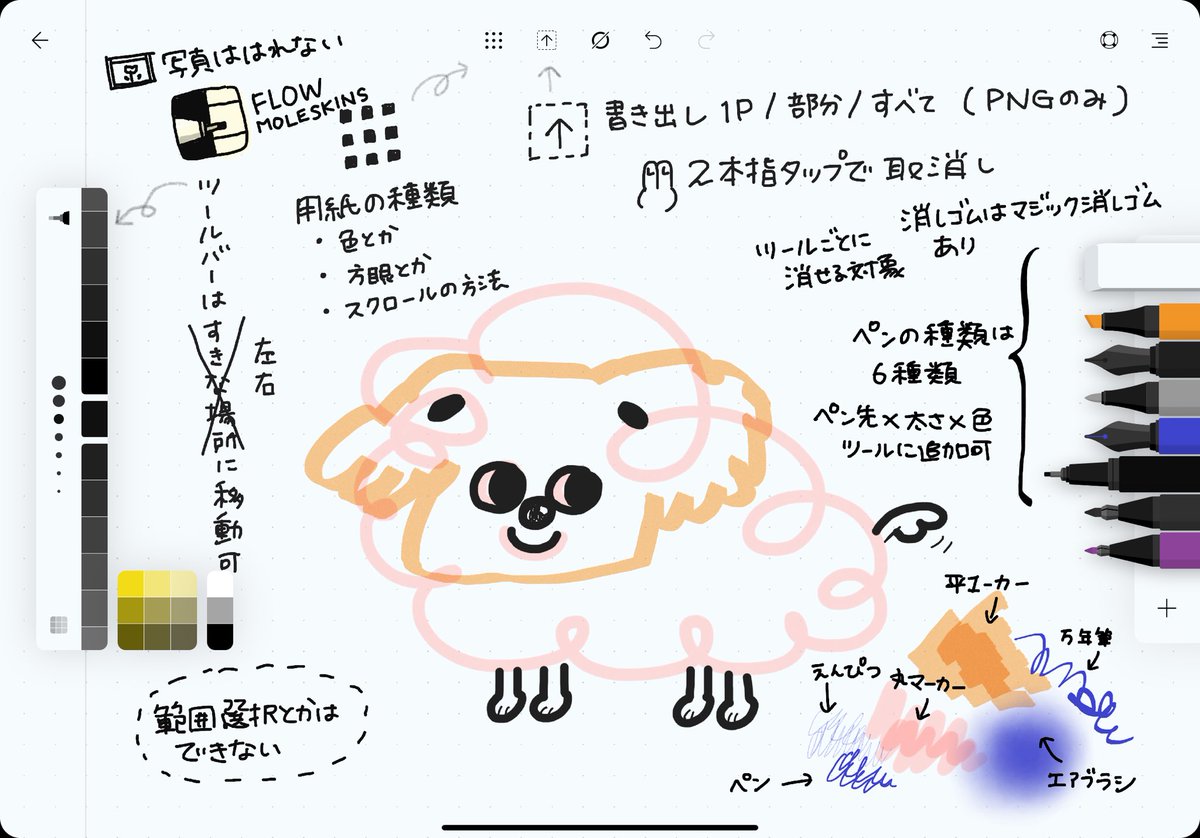 写真ははれない
FLOW
MOLESKINS
書き出し 1P / 部分 / すべて (PNGのみ)
2本指タップで取消し
消しゴムはマジック消しゴム
あり
ツールごとに
消せる対象
用紙の種類
・色とか
・方眼とか
・スクロールの方法
ツールバーはすきな場所に移動可
左右
ペンの種類は
6種類
ペン先×太さ×色
ツールに追加可
平マーカー
万年筆
えんぴつ
丸マーカー
ペン
エアブラシ
範囲選択とかは
できない